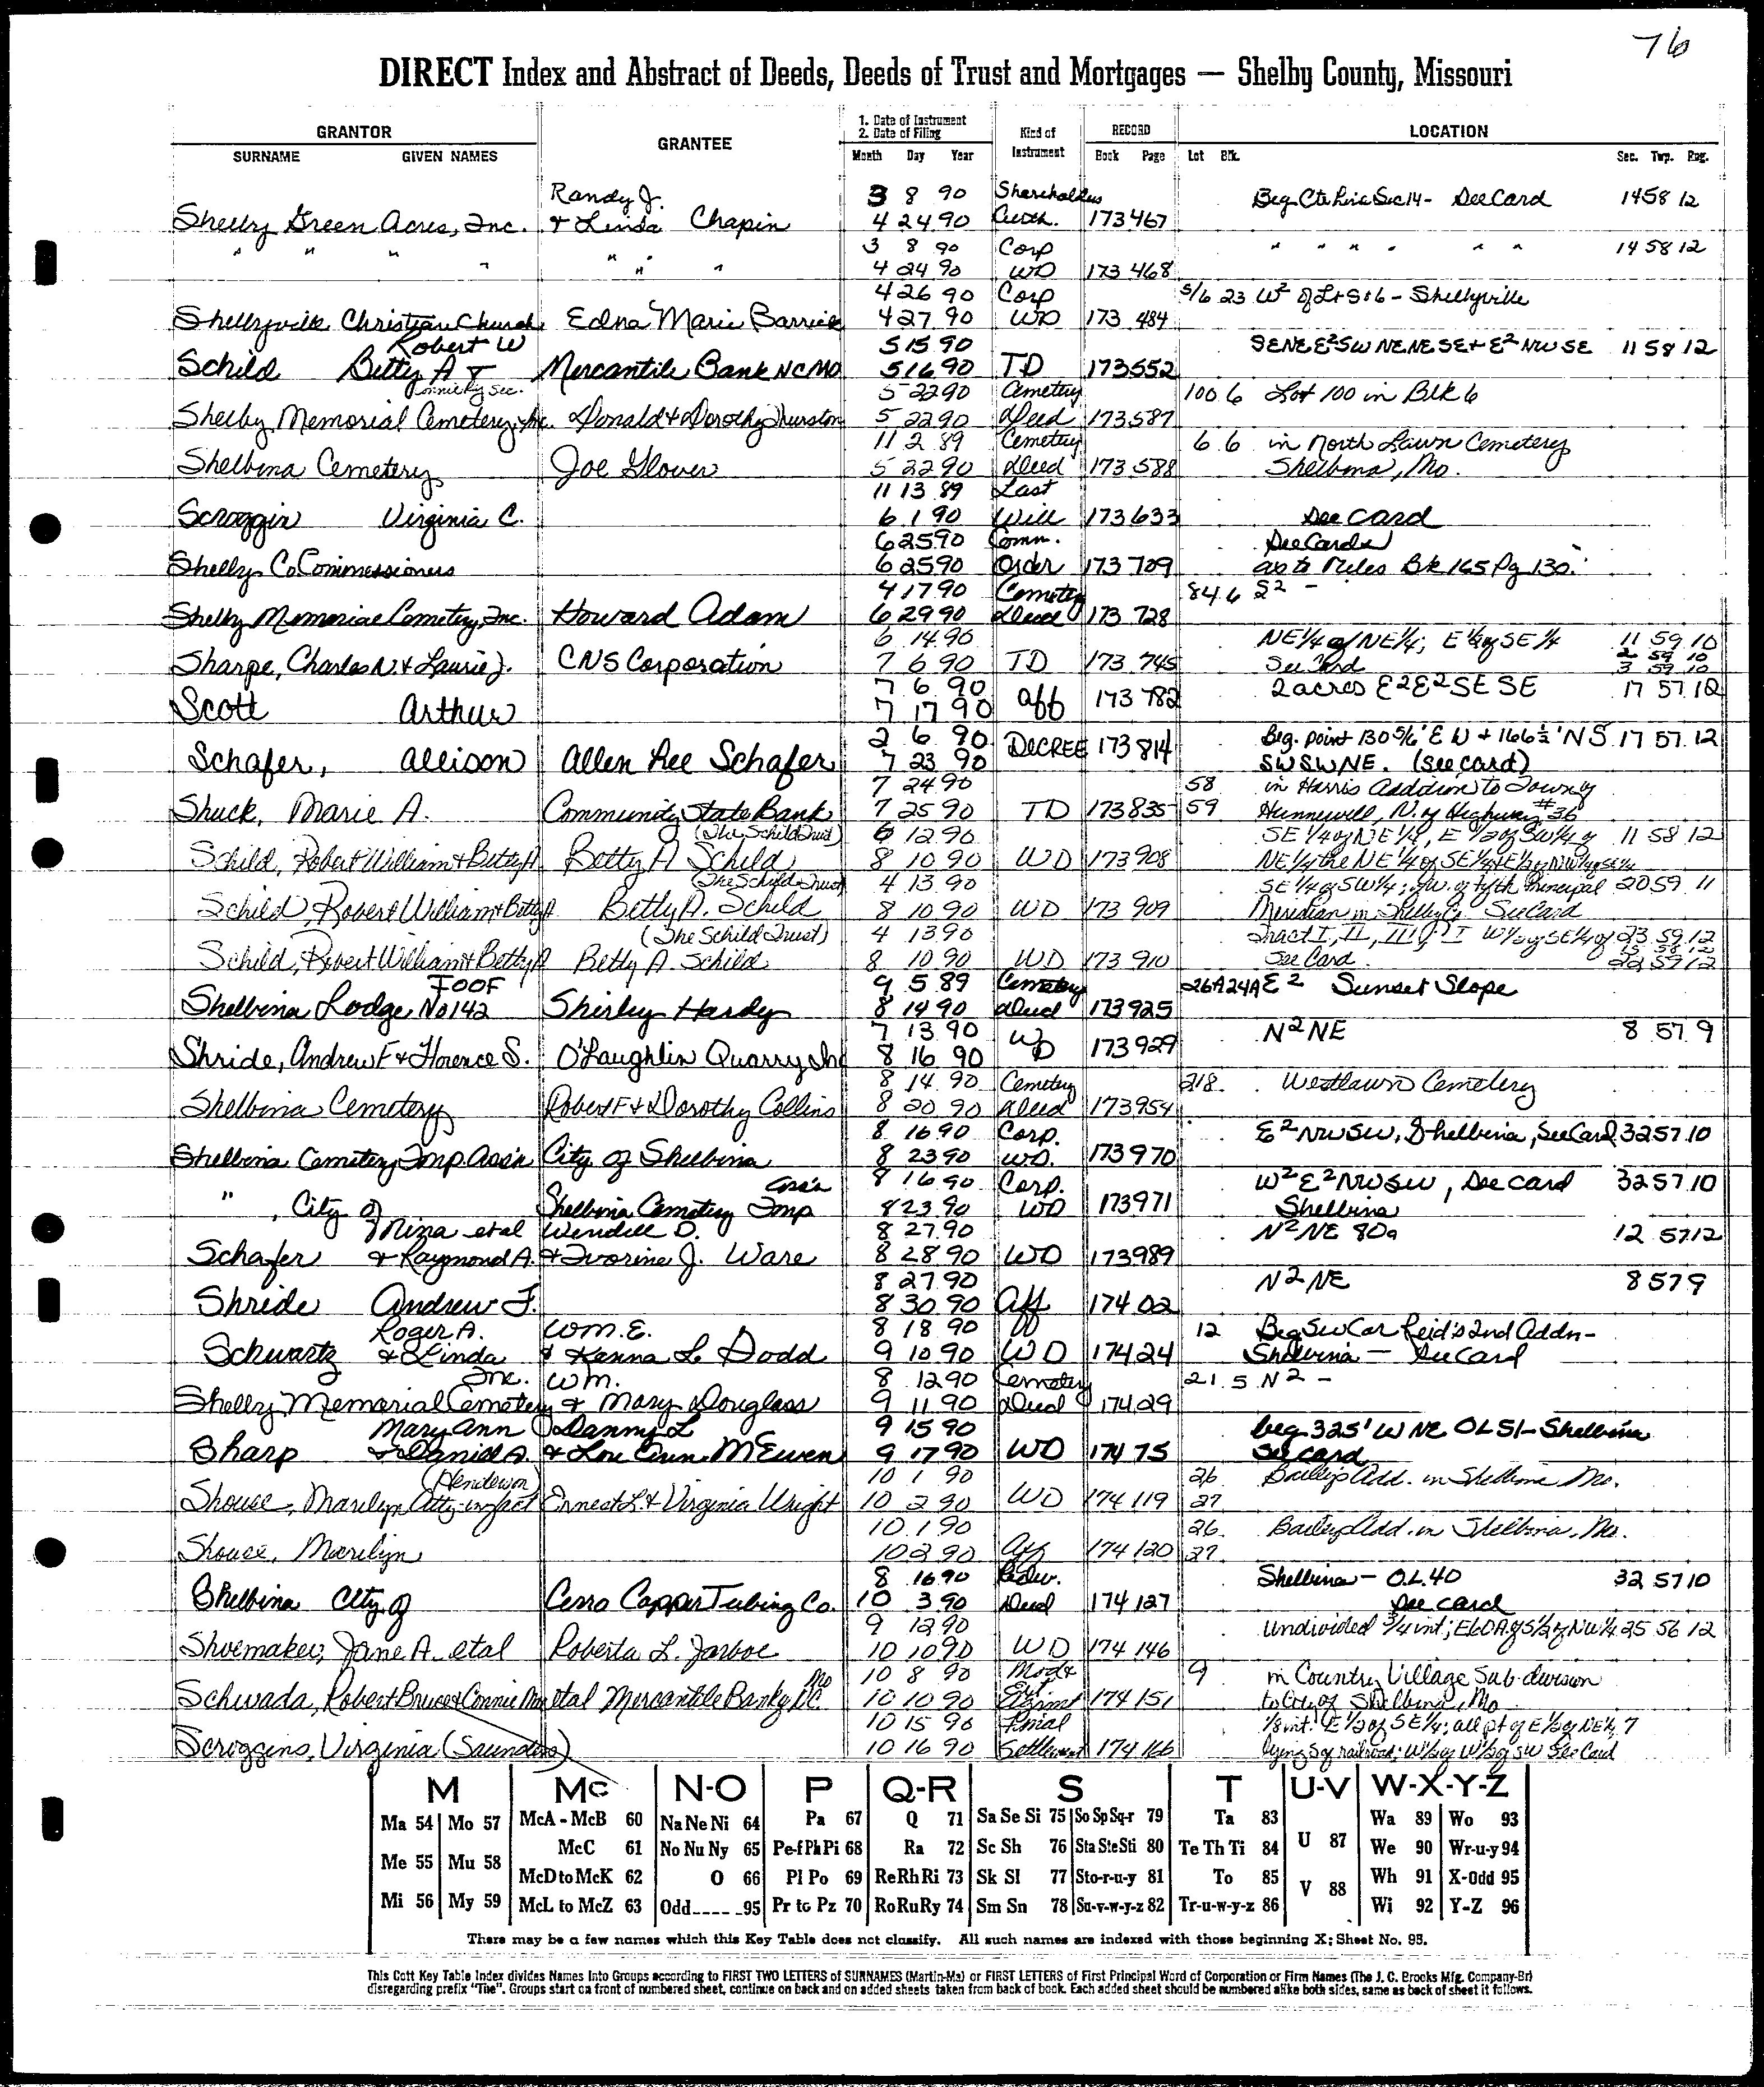 76
DIRECT Index and Abstract of Deeds, Deeds of Trust and Mortgages — Shelby County, Missouri
GRANTOR GRANTEE 1. Date of Instrument 2. Date of Filing Kind of Instrument RECORD LOCATION
SURNAME GIVEN NAMES Month Day Year Book Page Lot Blk. Sec. Twp. Rng.
Randy J. 3 8 90 Shareholders Beg Ctr Line Sec 14 - See Card 14 58 12
Shelby Green Acres, Inc. & Linda Chapin 4 24 90 173 467
" " " " " " " 3 8 90 Corp " " " " " " 14 58 12
4 24 90 WD 173 468
4 26 90 Corp 5/6 23 W² of Lts 5+6 - Shelbyville
Shelbyville Christian Church Edna Marie Barrick 4 27 90 WD 173 484
Robert W 5 15 90 SENE E²SW NE, NE SE + E² NW SE 11 58 12
Schild Betty A & Mercantile Bank NC MO 5 16 90 TD 173 552
5 22 90 Cemetery 100 6 Lot 100 in Blk 6
Shelby Memorial Cemetery, Inc. Donald & Dorothy Thurston 5 22 90 Deed 173 587
11 2 89 Cemetery 6 6 in North Lawn Cemetery
Shelbina Cemetery Joe Glover 5 22 90 Deed 173 588 Shelbina, Mo.
11 13 89 Last
Scroggin Virginia C. 6 1 90 Will 173 633 See Card
6 25 90 Comm. See Cards
Shelby Co Commissioners 6 25 90 Order 173 709 as to Bk 165 Pg 130.
4 17 90 Cemetery 84 6 S² -
Shelby Memorial Cemetery, Inc. Howard Adam 6 29 90 Deed 173 728
6 14 90 NE¼ of NE¼; E½ of SE¼ 11 59 10
2 59 10
Sharpe, Charles N. & Laurie J. CNS Corporation 7 6 90 TD 173 745 See Card 3 59 10
7 6 90 2 acres E²E²SE SE 17 57 12
Scott Arthur 7 17 90 Aff 173 782
2 6 90 Beg. point 130 5/6' E W + 166½' N S 17 57 12
Schafer, Allison Allen Lee Schafer 7 23 90 DECREE 173 814 SWSWNE. (see card)
7 24 90 58 in Harris Addition to Town of
Shuck, Marie A. Community State Bank 7 25 90 TD 173 835 59 Hunnewell, N. of Highway #36
(The Schild Trust) 6 12 90 SE ¼ of NE ¼, E ½ of SW¼ of 11 58 12
Schild, Robert William & Betty A Betty A Schild 8 10 90 WD 173 908 NE¼ the NE¼ of SE¼ & E½ of NW¼ of SE¼
(The Schild Trust) 4 13 90 SE ¼ of SW¼; of 5th Principal 20 59 11
Schild, Robert William & Betty A Betty A. Schild 8 10 90 WD 173 909 Meridian in Shelby Co. See Card
(The Schild Trust) 4 13 90 Tract I, II, III W½ of SE¼ of 23 59 12
15 58 12
Schild, Robert William & Betty A Betty A. Schild 8 10 90 WD 173 910 See Card 22 59 12
IOOF 9 5 89 Cemetery 26A 24A E² Sunset Slope
Shelbina Lodge No 142 Shirley Hardy 8 14 90 Deed 173 925
7 13 90 N²NE 8 57 9
Shride, Andrew F & Florence S. O'Laughlin Quarry Inc 8 16 90 WD 173 929
8 14 90 Cemetery 218. Westlawn Cemetery
Shelbina Cemetery Robert F & Dorothy Collins 8 20 90 Deed 173 954
8 16 90 Corp. E²NWSW, Shelbina, See Card 32 57 10
Shelbina Cemetery Imp. Ass'n City of Shelbina 8 23 90 WD. 173 970
Ass'n 8 16 90 Corp. W²E²NWSW, See card 32 57 10
" , City of Shelbina Cemetery Imp 8 23 90 WD 173 971 Shelbina
Mina et al Wendell D. 8 27 90 N²NE 80a 12 57 12
Schafer & Raymond A. & Ivorine J. Ware 8 28 90 WD 173 989
8 27 90 N²NE 8 57 9
Shride Andrew F. 8 30 90 Aff 174 02
Roger A. WM. E. 8 18 90 12 Beg SW Cor Reid's 2nd Addn -
Schwartz & Linda & Kanna L Dodd 9 10 90 WD 174 24 Shelbina — See Card
Inc. Wm. 8 12 90 Cemetery 21 5 N² -
Shelby Memorial Cemetery & Mary Douglass 9 11 90 Deed 174 29
Mary Ann Danny L 9 15 90 beg 325' W NE OL 51 - Shelbina
Sharp & Daniel A. & Lou Ann McEwen 9 17 90 WD 174 75 See card
(Henderson) 10 1 90 26 Bailey's Add. in Shelbina Mo.
Shouse, Marilyn Atty-in-fact Ernest L. & Virginia Wright 10 2 90 WD 174 119 27
10 1 90 26 Bailey's Add. in Shelbina, Mo.
Shouse, Marilyn 10 2 90 Aff 174 120 27
8 16 90 Shelbina - O.L. 40 32 57 10
Shelbina City of Cerro Copper Tubing Co. 10 3 90 Deed 174 127 See card
9 12 90 Undivided ¾ int; E60A of S½ of NW¼ 25 56 12
Shoemaker, Jane A. et al Roberta L. Jarboe 10 10 90 WD 174 146
10 8 90 9 in Country Village Sub-division
Schwada, Robert Bruce & Connie et al Mercantile Bank of NC Mo 10 10 90 174 151 to City of Shelbina, Mo
10 15 90 Final 1/8 int. E ½ of SE¼; all pt of E½ of NE¼, 7
Scroggins, Virginia (Saunders) 10 16 90 Settlement 174 166 lying S of railroad; W½ of W½ of SW See Card
M Mc N-O P Q-R S T U-V W-X-Y-Z
Ma 54 Mo 57 McA - McB 60 Na Ne Ni 64 Pa 67 Q 71 Sa Se Si 75 So Sp Sq-r 79 Ta 83 Wa 89 Wo 93
McC 61 No Nu Ny 65 Pe-f Ph Pi 68 Ra 72 Sc Sh 76 Sta Ste Sti 80 Te Th Ti 84 U 87 We 90 Wr-u-y 94
Me 55 Mu 58 McD to McK 62 O 66 Pl Po 69 Re Rh Ri 73 Sk Sl 77 Sto-r-u-y 81 To 85 V 88 Wh 91 X-Odd 95
Mi 56 My 59 McL to McZ 63 Odd---- -95 Pr to Pz 70 Ro Ru Ry 74 Sm Sn 78 Su-v-w-y-z 82 Tr-u-w-y-z 86 Wi 92 Y-Z 96
There may be a few names which this Key Table does not classify. All such names are indexed with those beginning X; Sheet No. 95.
This Cott Key Table Index divides Names Into Groups according to FIRST TWO LETTERS of SURNAMES (Martin-Ma) or FIRST LETTERS of First Principal Word of Corporation or Firm Names (The J. C. Brooks Mfg. Company-Br)
disregarding prefix "The". Groups start on front of numbered sheet, continue on back and on added sheets taken from back of book. Each added sheet should be numbered alike both sides, same as back of sheet it follows.